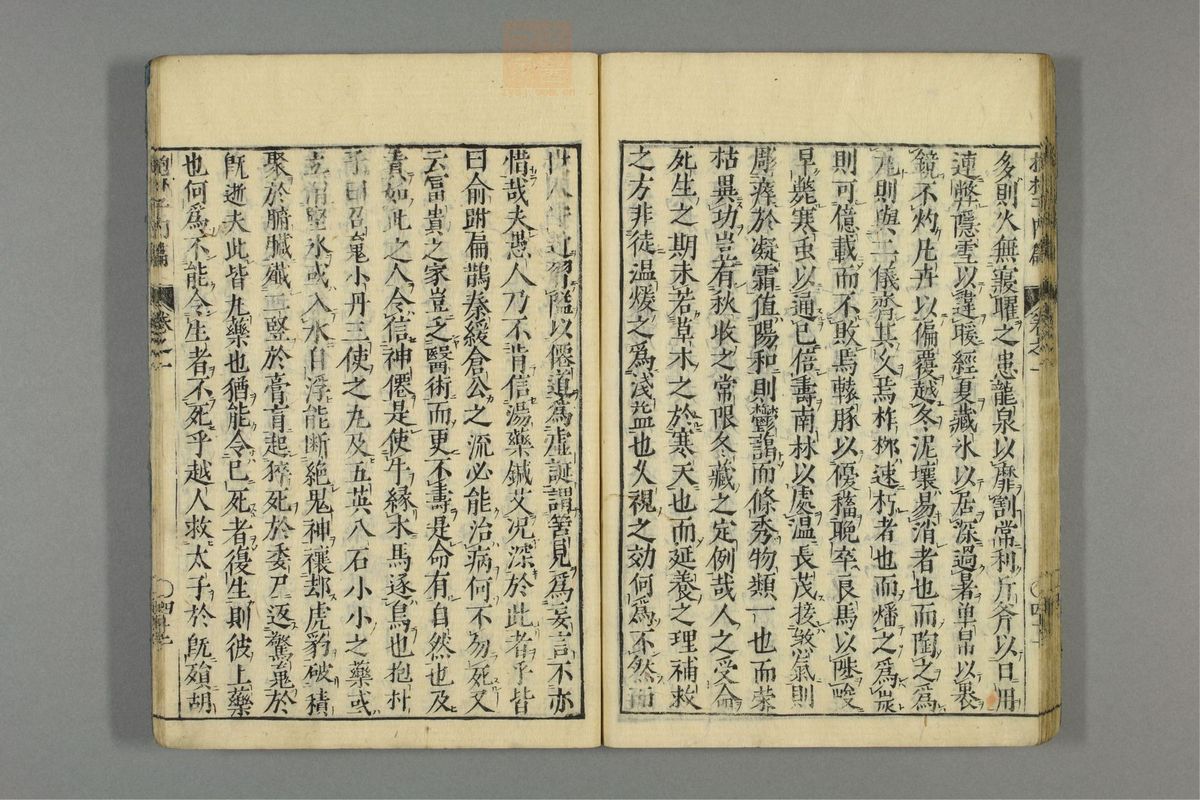 多則火無寢曜之患龍泉以靡割常利斤斧以日用
速弊隱雪以違暖經夏藏氷以居深過暑单帛以裹
鏡不灼凢卉以偏覆越冬泥壤易消者也而陶之爲
瓦則與二儀齊其久焉柞栁速朽者也而燔之爲炭
則可億載而不敗焉轅豚以優稸晚卒良馬以陟峻
早斃寒虫以適已倍壽南林以處温長茂接煞氣則
彫瘁於凝霜值陽和則鬱藹而條秀物類一也而榮
枯異功豈有秋收之常限冬藏之定例哉人之受命
死生之期未若草木之於寒天也而延養之理補救
之方非徒温煖之爲浅益也久視之効何爲不然而
世人守近習隘以僊道爲虚誕謂見爲妄言不亦
惜哉夫愚人乃不肯信湯藥鍼艾况深於此者乎皆
曰俞跗扁鵲秦緩倉公之流必能治病何不勿死又
云富貴之家豈乏醫術而更不壽是命有自然也及
責如此之人令信神僊是使牛縁木馬逐鳥也抱朴
子曰召䰟小丹三使之丸及五英八石小小之藥或
立消堅氷或入水自浮能断絶鬼神禳却虎豹破積
聚於腑臟殲二竪於膏肓起猝死於委尸返驚䰟於
旣逝夫此皆九藥也猶能令已死者復生則彼上藥
也何爲不能令生者不死乎越人救太子於旣殞胡